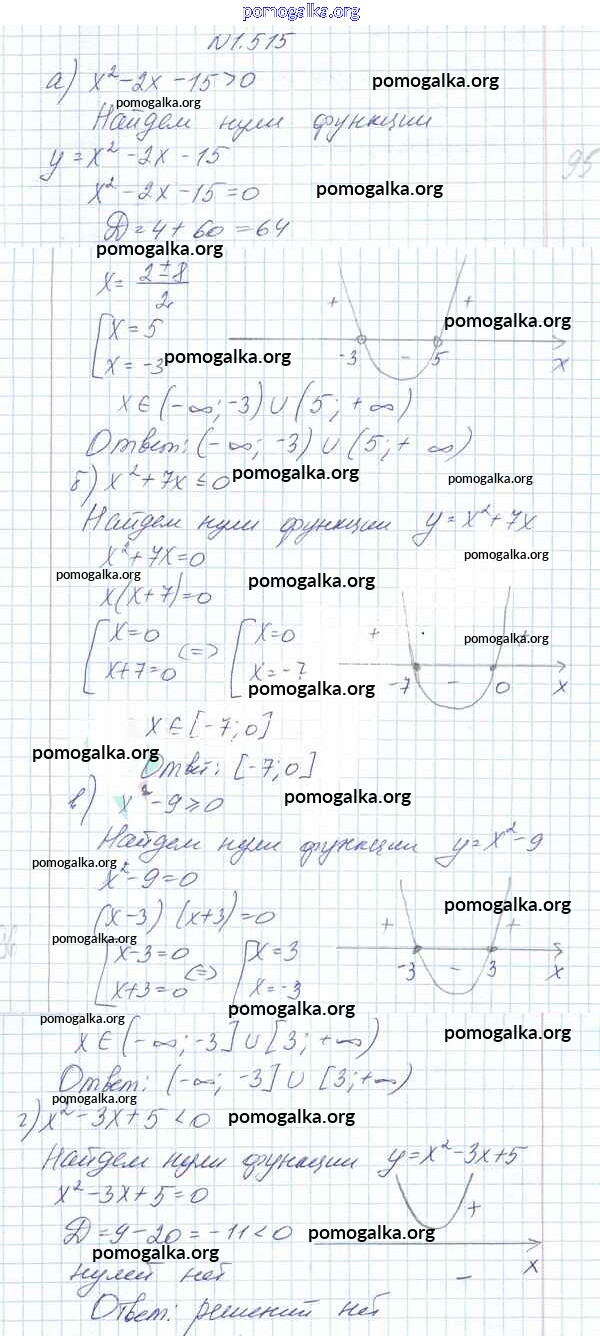 pomogalka.org
N1.515
а) x² - 2x - 15 > 0 pomogalka.org
pomogalka.org
Найдем нули функции
y = x² - 2x - 15 95
x² - 2x - 15 = 0 pomogalka.org
D = 4 + 60 = 64
pomogalka.org
x = 2 ± 8 / 2
+ + pomogalka.org
[ x = 5
x = -3 pomogalka.org -3 - 5 x
x ∈ (-∞; -3) ∪ (5; +∞)
Ответ: (-∞; -3) ∪ (5; + ∞)
б) x² + 7x ≤ 0 pomogalka.org pomogalka.org
Найдем нули функции y = x² + 7x
x² + 7x = 0 pomogalka.org
pomogalka.org pomogalka.org
x(x + 7) = 0
[ x = 0 <=> [ x = 0 + pomogalka.org +
x + 7 = 0 x = -7 -7 - 0 x
pomogalka.org
x ∈ [-7; 0]
pomogalka.org
Ответ: [-7; 0]
в) x² - 9 ≥ 0 pomogalka.org
Найдем нули функции y = x² - 9
pomogalka.org
x² - 9 = 0
(x - 3) (x + 3) = 0 pomogalka.org
pomogalka.org + +
[ x - 3 = 0 <=> [ x = 3
x + 3 = 0 x = -3 -3 - 3 x
pomogalka.org pomogalka.org
x ∈ (-∞; -3] ∪ [3; +∞) pomogalka.org
Ответ: (-∞; -3] ∪ [3; +∞)
г) x² - 3x + 5 < 0 pomogalka.org
Найдем нули функции y = x² - 3x + 5
x² - 3x + 5 = 0 +
D = 9 - 20 = -11 < 0 pomogalka.org
pomogalka.org x
нулей нет -
Ответ: решений нет